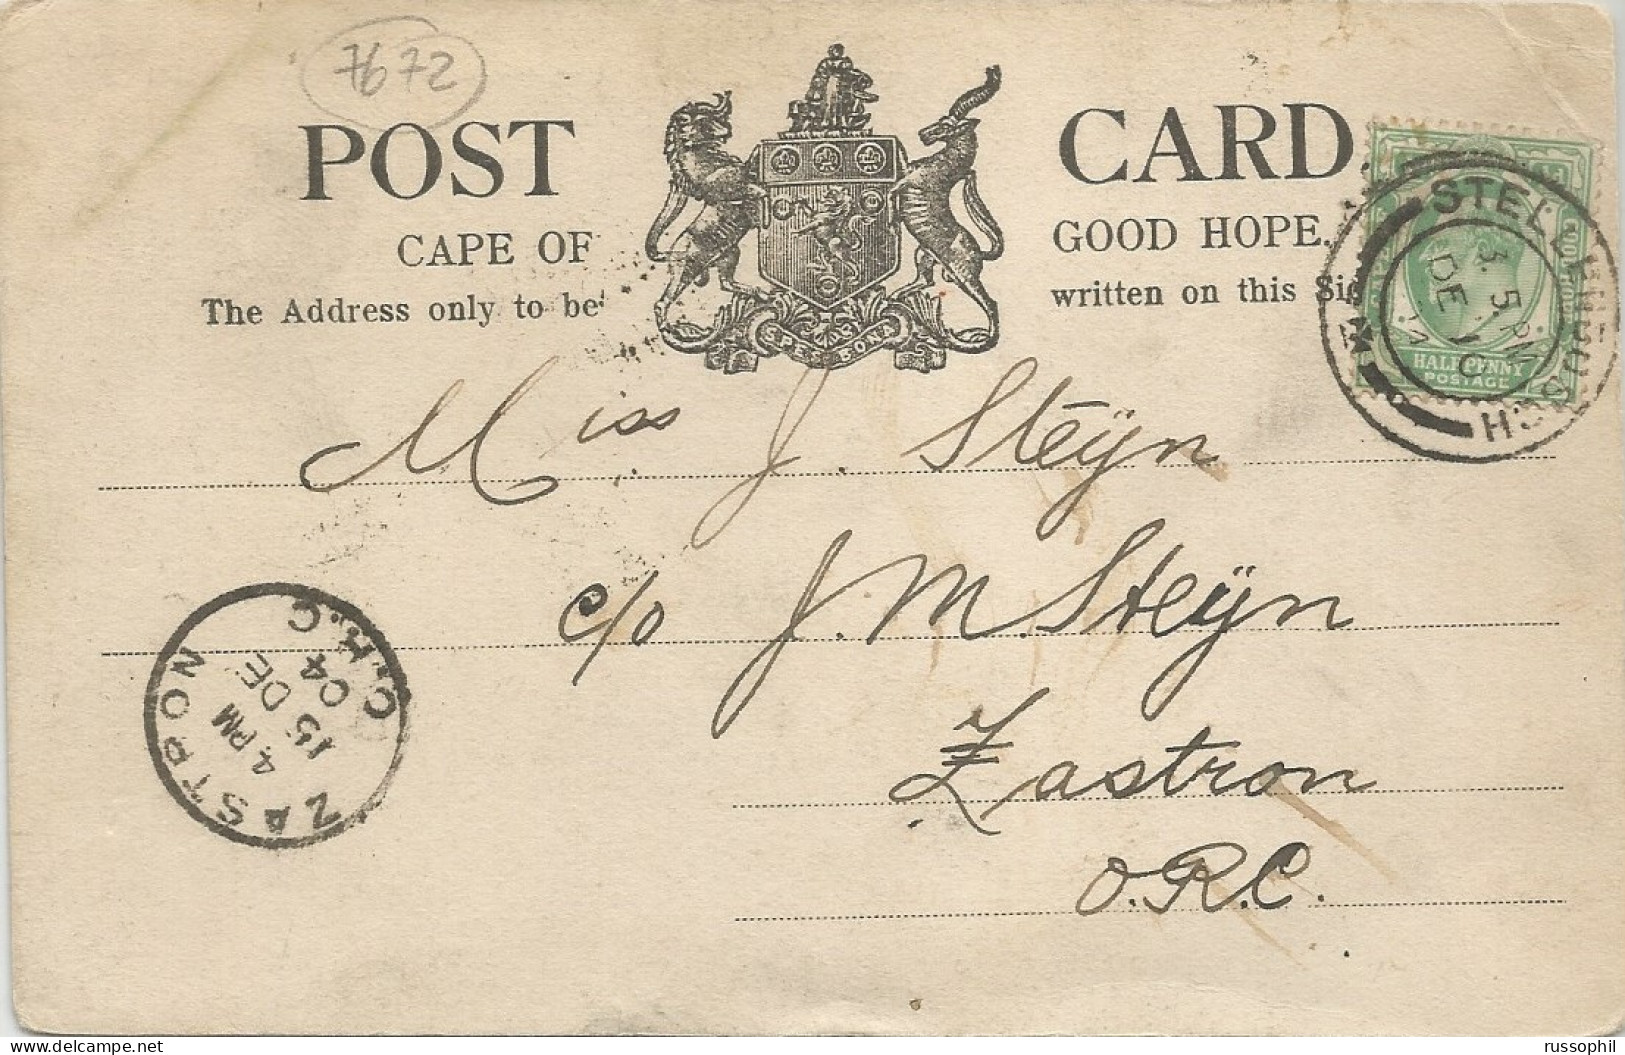 7672
POST CARD
CAPE OF GOOD HOPE.
The Address only to be written on this
SPES BONA
HALF PENNY
POSTAGE
STELLENBOSCH
5 PM
DE 10
Miss J. Steÿn
c/o J. M. Steÿn
Zastron
O.R.C.
ZASTRON
O.R.C
4 PM
15 DE
04
www.delcampe.net
russophil